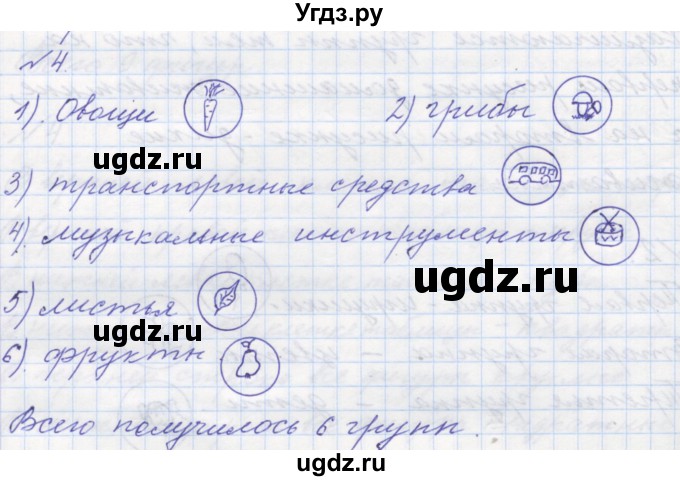 Угдз.ру
№4.
1). Овощи 2) грибы
ugdz.ru
3) транспортные средства
4). музыкальные инструменты
ugdz.ru
5) листья
ugdz.ru
6). фрукты
ugdz.ru
Всего получилось 6 групп.
ugdz.ru